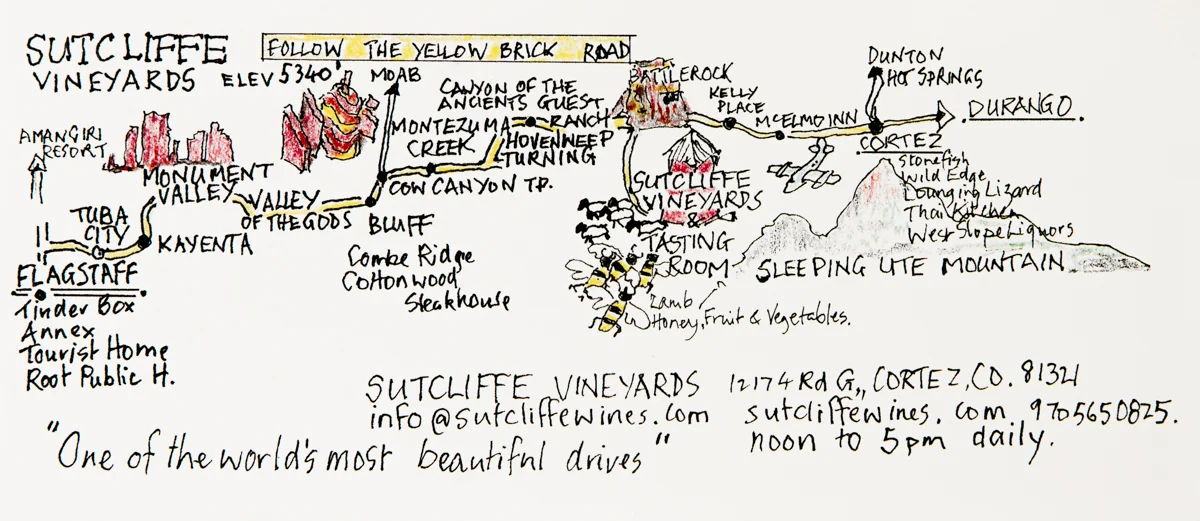 SUTCLIFFE
VINEYARDS ELEV 5340'
FOLLOW THE YELLOW BRICK ROAD
MOAB
CANYON OF THE
ANCIENTS GUEST
RANCH
BATTLEROCK
KELLY
PLACE
MCELMO INN
DUNTON
HOT SPRINGS
DURANGO.
CORTEZ
Stonefish
Wild Edge
Lounging Lizard
Thai Kitchen
West Slope Liquors
AMANGIRI
RESORT
MONUMENT
VALLEY
VALLEY
OF THE GODS
MONTEZUMA
CREEK
HOVENWEEP
TURNING
COW CANYON TP.
BLUFF
Combe Ridge
Cottonwood
Steakhouse
TUBA
CITY
KAYENTA
FLAGSTAFF
Tinder Box
Annex
Tourist Home
Root Public H.
SUTCLIFFE
VINEYARDS
&
TASTING
ROOM
SLEEPING UTE MOUNTAIN
Lamb
Honey, Fruit & Vegetables.
SUTCLIFFE VINEYARDS 12174 Rd G,, CORTEZ, CO. 81321
info@sutcliffewines.com sutcliffewines.com 9705650825.
noon to 5pm daily.
"One of the world's most beautiful drives"